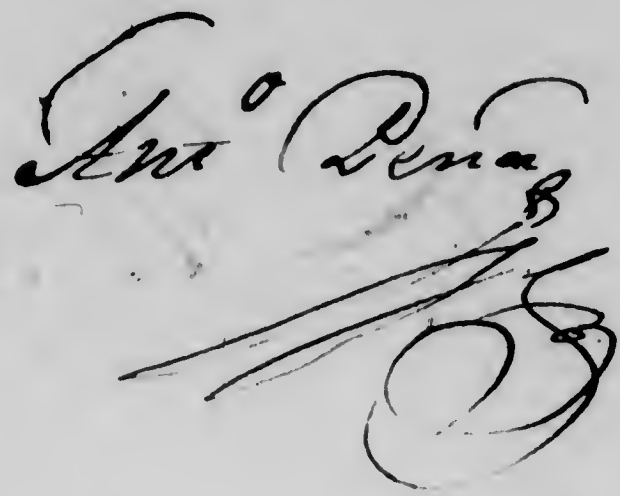 Antº Peña